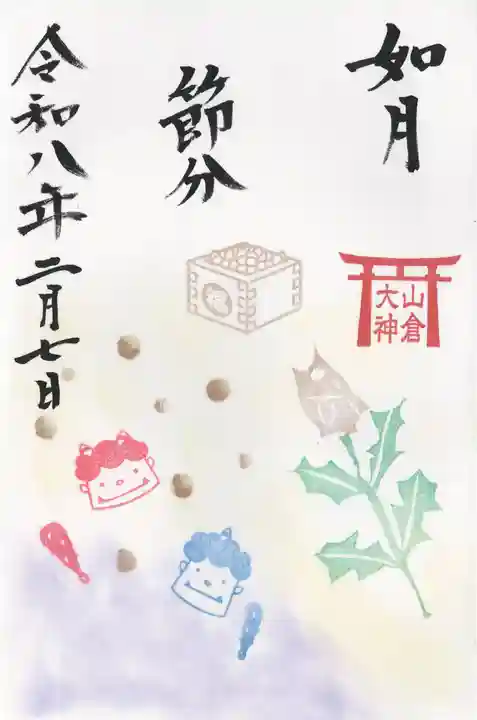 如月
節分
山倉
大神
令和八年二月七日